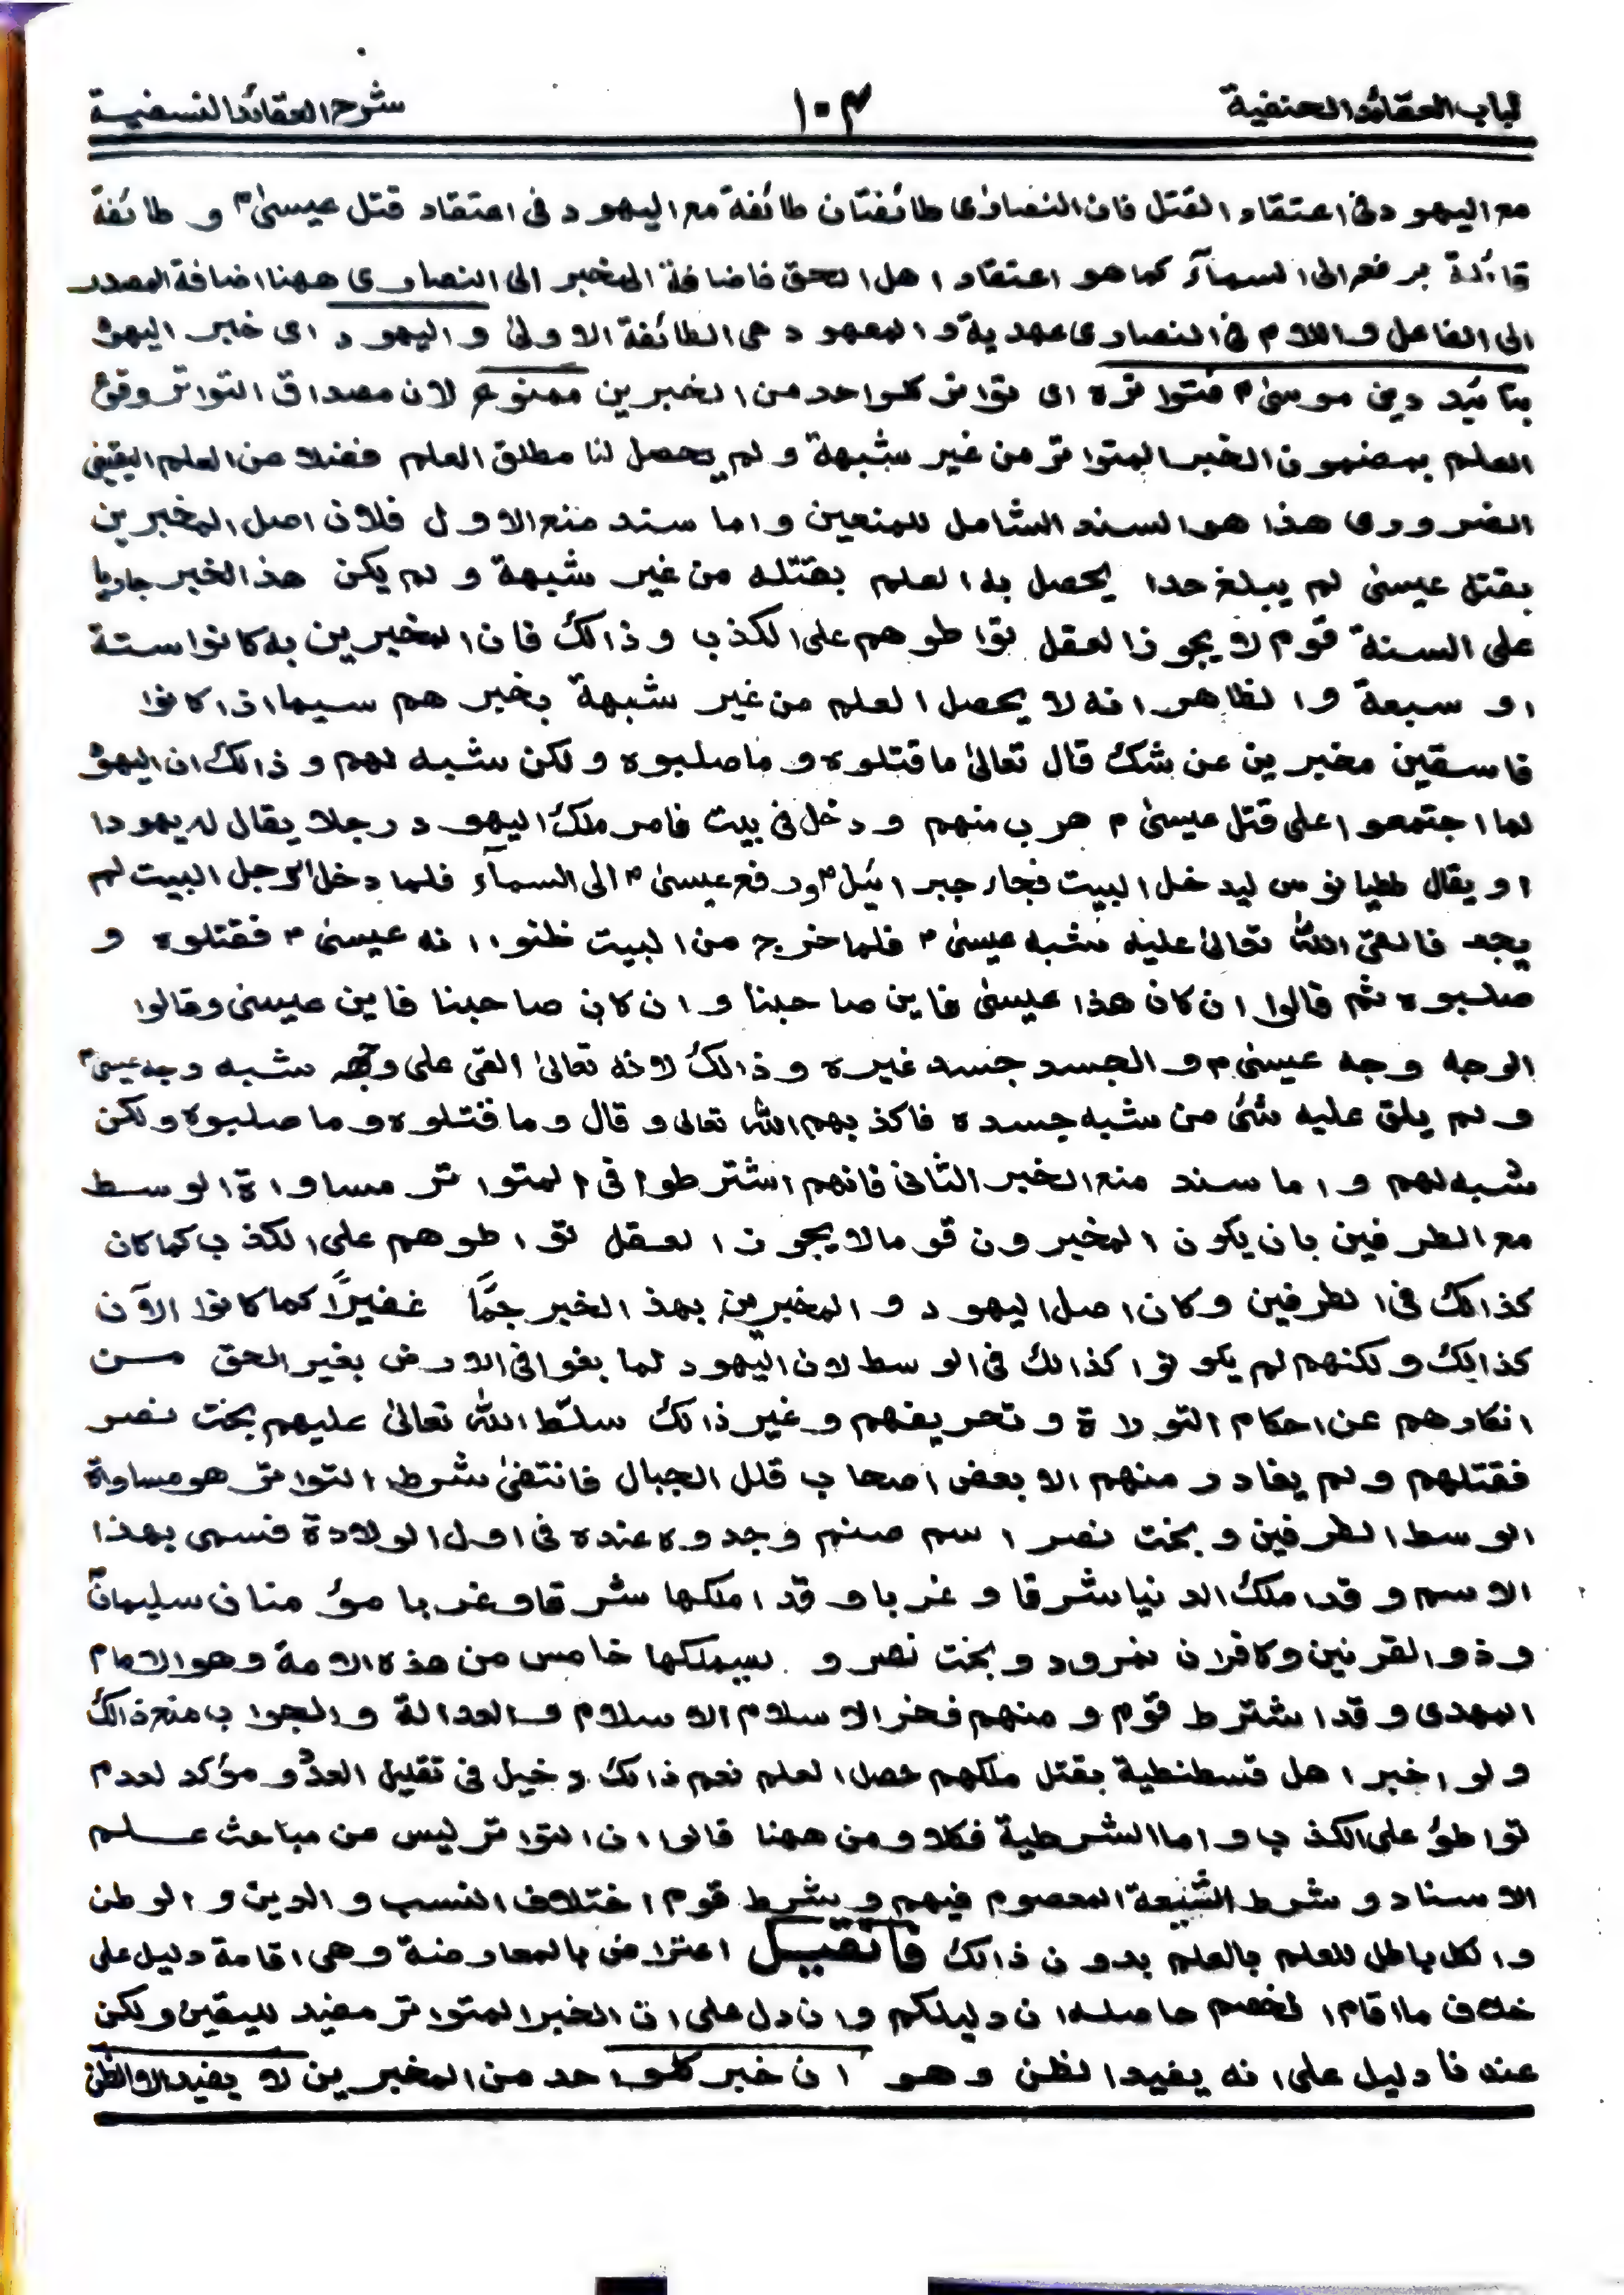 لباب العقائد الحنفية ١٠٣ شرح العقائد النسفية
مع اليهود فى اعتقاد القتل فان النصارٰى طائفتان طائفة مع اليهود فى اعتقاد قتل عيسىٰ ؑ و طائفة
قائلة برفع الى السمآء كما هو اعتقاد اهل الحق فاضافة الخبر الى النصارى ههنا اضافة المصدر
الى الفاعل واللام فى النصارى عهدية والمعهود هى الطائفة الاولىٰ واليهود اى خبر اليهود
بتائيد دين موسىٰ ؑ فتواتره اى تواتر كلواحد من الخبرين ممنوع لان مصداق التواتر وقوع
العلم بمضمون الخبر المتواتر من غير شبهة ولم يحصل لنا مطلق العلم فضلا عن العلم اليقينى
الضرورى هذا هو السند الشامل للمنعين واما سند منع الاول فلان اصل المخبرين
بقتل عيسىٰ لم يبلغ حدا يحصل به العلم بقتله من غير شبهة ولم يكن هذ الخبر جاريا
على السنة قوم لا يجوز العقل تواطوهم على الكذب وذالك فان المخبرين به كانوا ستة
او سبعة والظاهر انه لا يحصل العلم من غير شبهة بخبرهم سيما اذا كانوا
فاسقين مخبرين عن شك قال تعالىٰ ما قتلوه وما صلبوه ولكن شبه لهم وذالك ان اليهود
لما اجتمعوا على قتل عيسىٰ ؑ هرب منهم ودخل فى بيت فامر ملك اليهود رجلا يقال له يهودا
او يقال ططيانوس ليدخل البيت فجاء جبرائيل ؑ ورفع عيسىٰ ؑ الى السمآء فلما دخل الرجل البيت لم
يجد فالقى الله تعالىٰ عليه شبه عيسىٰ ؑ فلما خرج من البيت ظنوا انه عيسىٰ ؑ فقتلوه و
صلبوه ثم قالوا ان كان هذا عيسىٰ فاين صاحبنا وان كان صاحبنا فاين عيسىٰ وقالوا
الوجه وجه عيسىٰ ؑ والجسد جسد غيره وذالك لانه تعالىٰ القى على وجهه شبه وجه عيسىٰ ؑ
ولم يلق عليه شئ من شبه جسده فاكذبهم الله تعالى وقال وما قتلوه وما صلبوه ولكن
شبه لهم واما سند منع الخبر الثانى فانهم اشترطوا فى المتواتر مساواة الوسط
مع الطرفين بان يكون المخبرون قوما لا يجوز العقل تواطوهم على الكذب كما كان
كذالك فى الطرفين وكان اصل اليهود والمخبرين بهذ الخبر جمًّا غفيرًا كما كانوا الآن
كذالك ولكنهم لم يكونوا كذالك فى الوسط لان اليهود لما بغوا فى الارض بغير الحق من
انكارهم عن احكام التوراة وتحريفهم وغير ذالك سلّط الله تعالىٰ عليهم بخت نصر
فقتلهم ولم يغادر منهم الا بعض اصحاب قلل الجبال فانتفىٰ شرط التواتر هو مساواة
الوسط الطرفين وبخت نصر اسم صنم وجدوه عنده فى اول الولادة فسمى بهذا
الاسم وقد املك الدنيا شرقا وغربا وقد املكها شرقا وغربا مؤمنان سليمان ؑ
وذو القرنين وكافران نمرود وبخت نصر و سيملكها خامس من هذه الامة وهو الامام
المهدى وقد اشترط قوم ومنهم فخر الاسلام الاسلام والعدالة والجواب منع ذالك
ولو اخبر اهل قسطنطية بقتل ملكهم حصل العلم نعم ذالك دخيل فى تقليل العدد و مؤكد لعدم
تواطؤ على الكذب واما الشرطية فكلا ومن ههنا قالوا ان التواتر ليس من مباحث علم
الاسناد وشرط الشيعة المعصوم فيهم وشرط قوم اختلاف النسب والدين والوطن
والكل باطل للعلم بالعلم بدون ذالك فان قيل اعتراض بالمعارضة وهى اقامة دليل على
خلاف ما اقام الخصم حاصله ان دليلكم وان دل على ان الخبر المتواتر مفيد لليقين ولكن
عندنا دليل على انه يفيد الظن وهو ان خبر كلواحد من المخبرين لا يفيد الا الظن